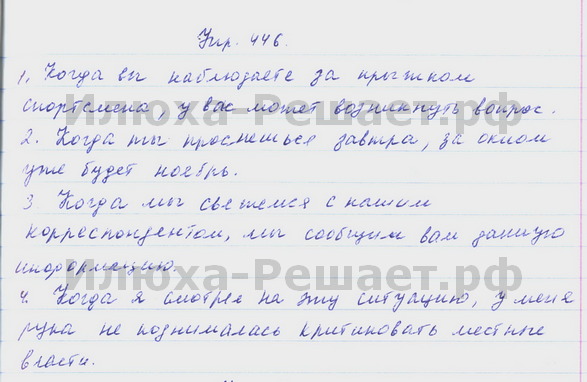 Упр. 446.
1. Когда вы наблюдаете за прыжком
спортсмена, у вас может возникнуть вопрос.
Илюха-Решает.рф
2. Когда ты проснешься завтра, за окном
уже будет ноябрь.
3 Когда мы свяжемся с нашим
корреспондентом, мы сообщим вам данную
информацию.
Илюха-Решает.рф
4. Когда я смотрел на эту ситуацию, у меня
рука не поднималась критиковать местные
власти.